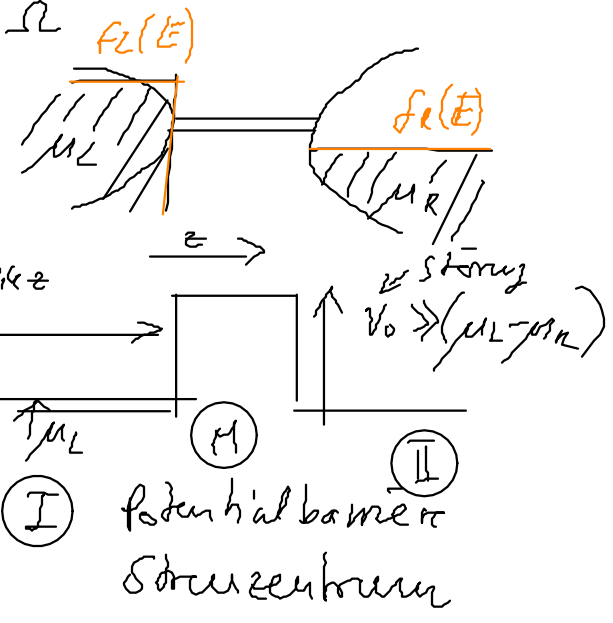 Ω
fL(E)
fR(E)
μL
μR
z
ikz
Störung
V₀ ≫ (μL-μR)
μL
M
II
I
Potentialbarriere
Streuzentrum